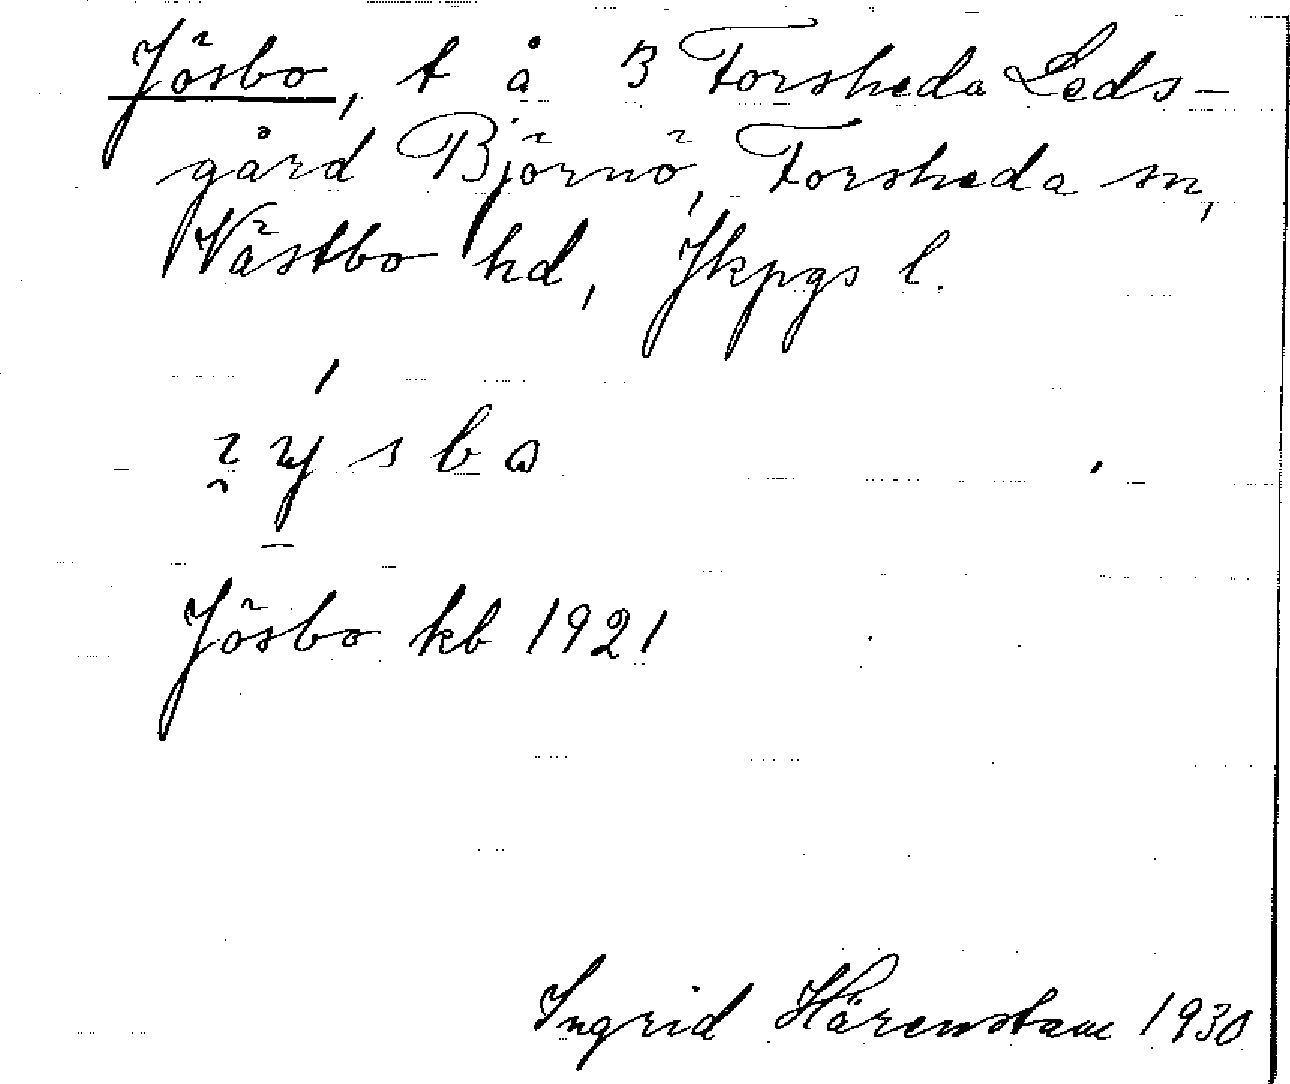 Jösbo, t å 3 Forsheda Leds-
gård Björnö, Forsheda sn,
Västbo hd, Jkpgs l.
Jösbo kb 1921
Ingrid Härenstam 1930